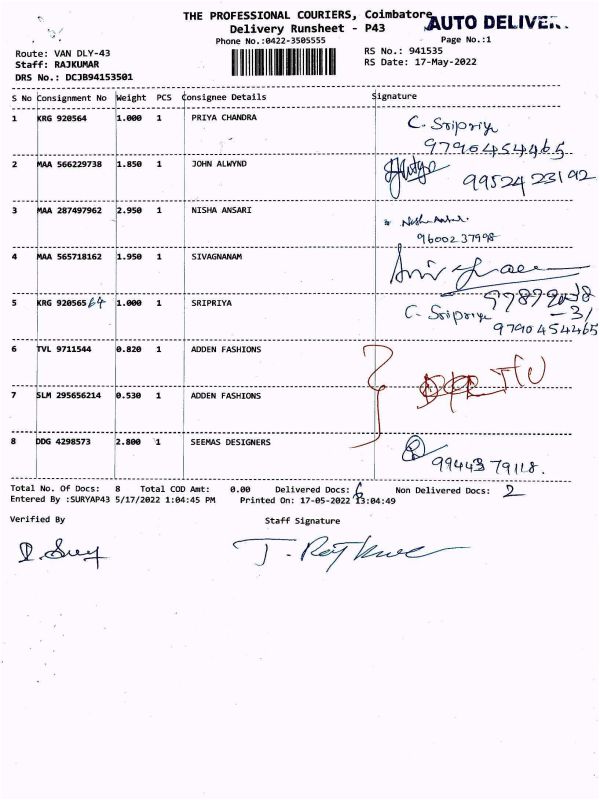 THE PROFESSIONAL COURIERS, Coimbatore
AUTO DELIVER
Delivery Runsheet - P43
Phone No.:0422-3505555
Page No.:1
Route: VAN DLY-43
RS No.: 941535
Staff: RAJKUMAR
RS Date: 17-May-2022
DRS No.: DCJB94153501
S No Consignment No Weight PCS Consignee Details Signature
1 KRG 920564 1.000 1 PRIYA CHANDRA C. Sripriya
9790454465
2 MAA 566229738 1.850 1 JOHN ALWYND
9952423192
3 MAA 287497962 2.950 1 NISHA ANSARI Nisha Ansari.
9600237998
4 MAA 565718162 1.950 1 SIVAGNANAM
5 KRG 920565 64 1.000 1 SRIPRIYA C. Sripriya
9790454465
6 TVL 9711544 0.820 1 ADDEN FASHIONS
7 SLM 295656214 0.530 1 ADDEN FASHIONS
8 DDG 4298573 2.800 1 SEEMAS DESIGNERS
99443 79118.
Total No. Of Docs: 8 Total COD Amt: 0.00 Delivered Docs: 6 Non Delivered Docs: 2
Entered By :SURYAP43 5/17/2022 1:04:45 PM Printed On: 17-05-2022 13:04:49
Verified By Staff Signature